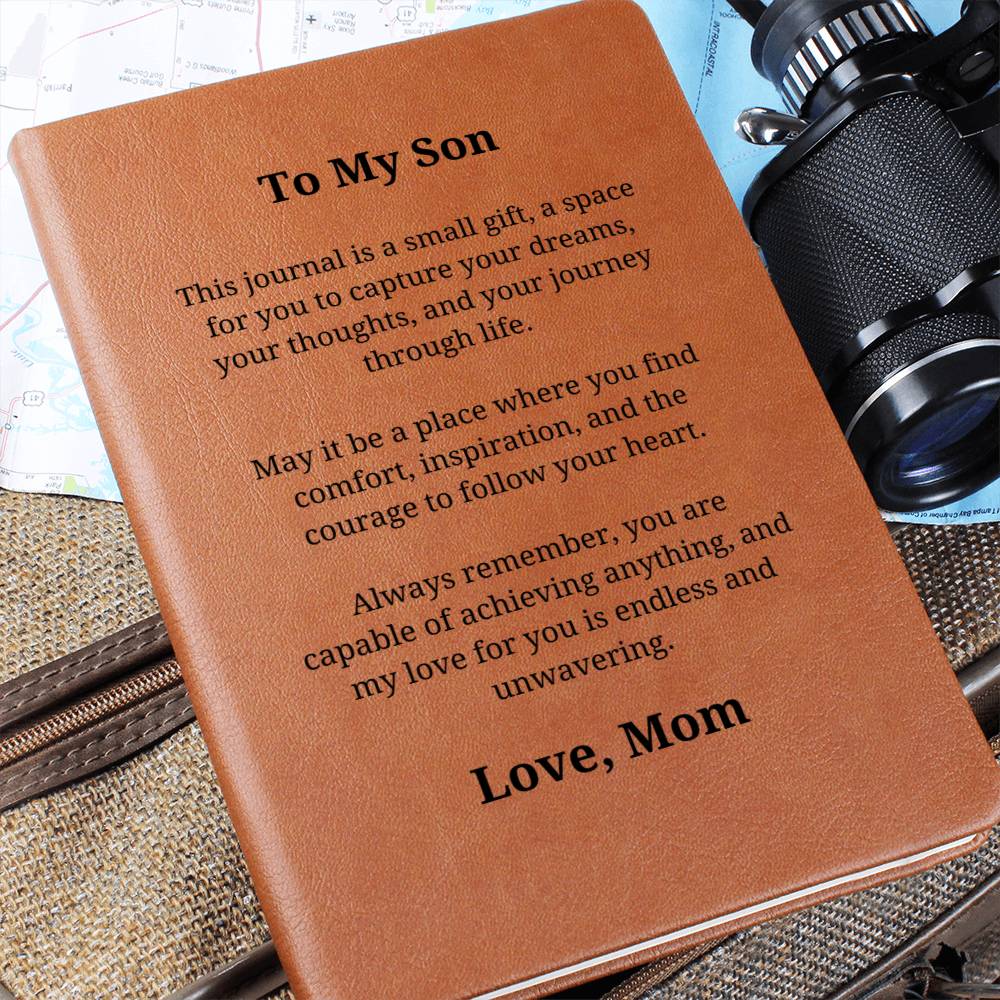 To My Son
This journal is a small gift, a space
for you to capture your dreams,
your thoughts, and your journey
through life.
May it be a place where you find
comfort, inspiration, and the
courage to follow your heart.
Always remember, you are
capable of achieving anything, and
my love for you is endless and
unwavering.
Love, Mom
Parrish
Buffalo Creek
Golf Course
Woodlands G C
Airport
Ranch
Dixie Sky
41
INTRACOASTAL
41
Park